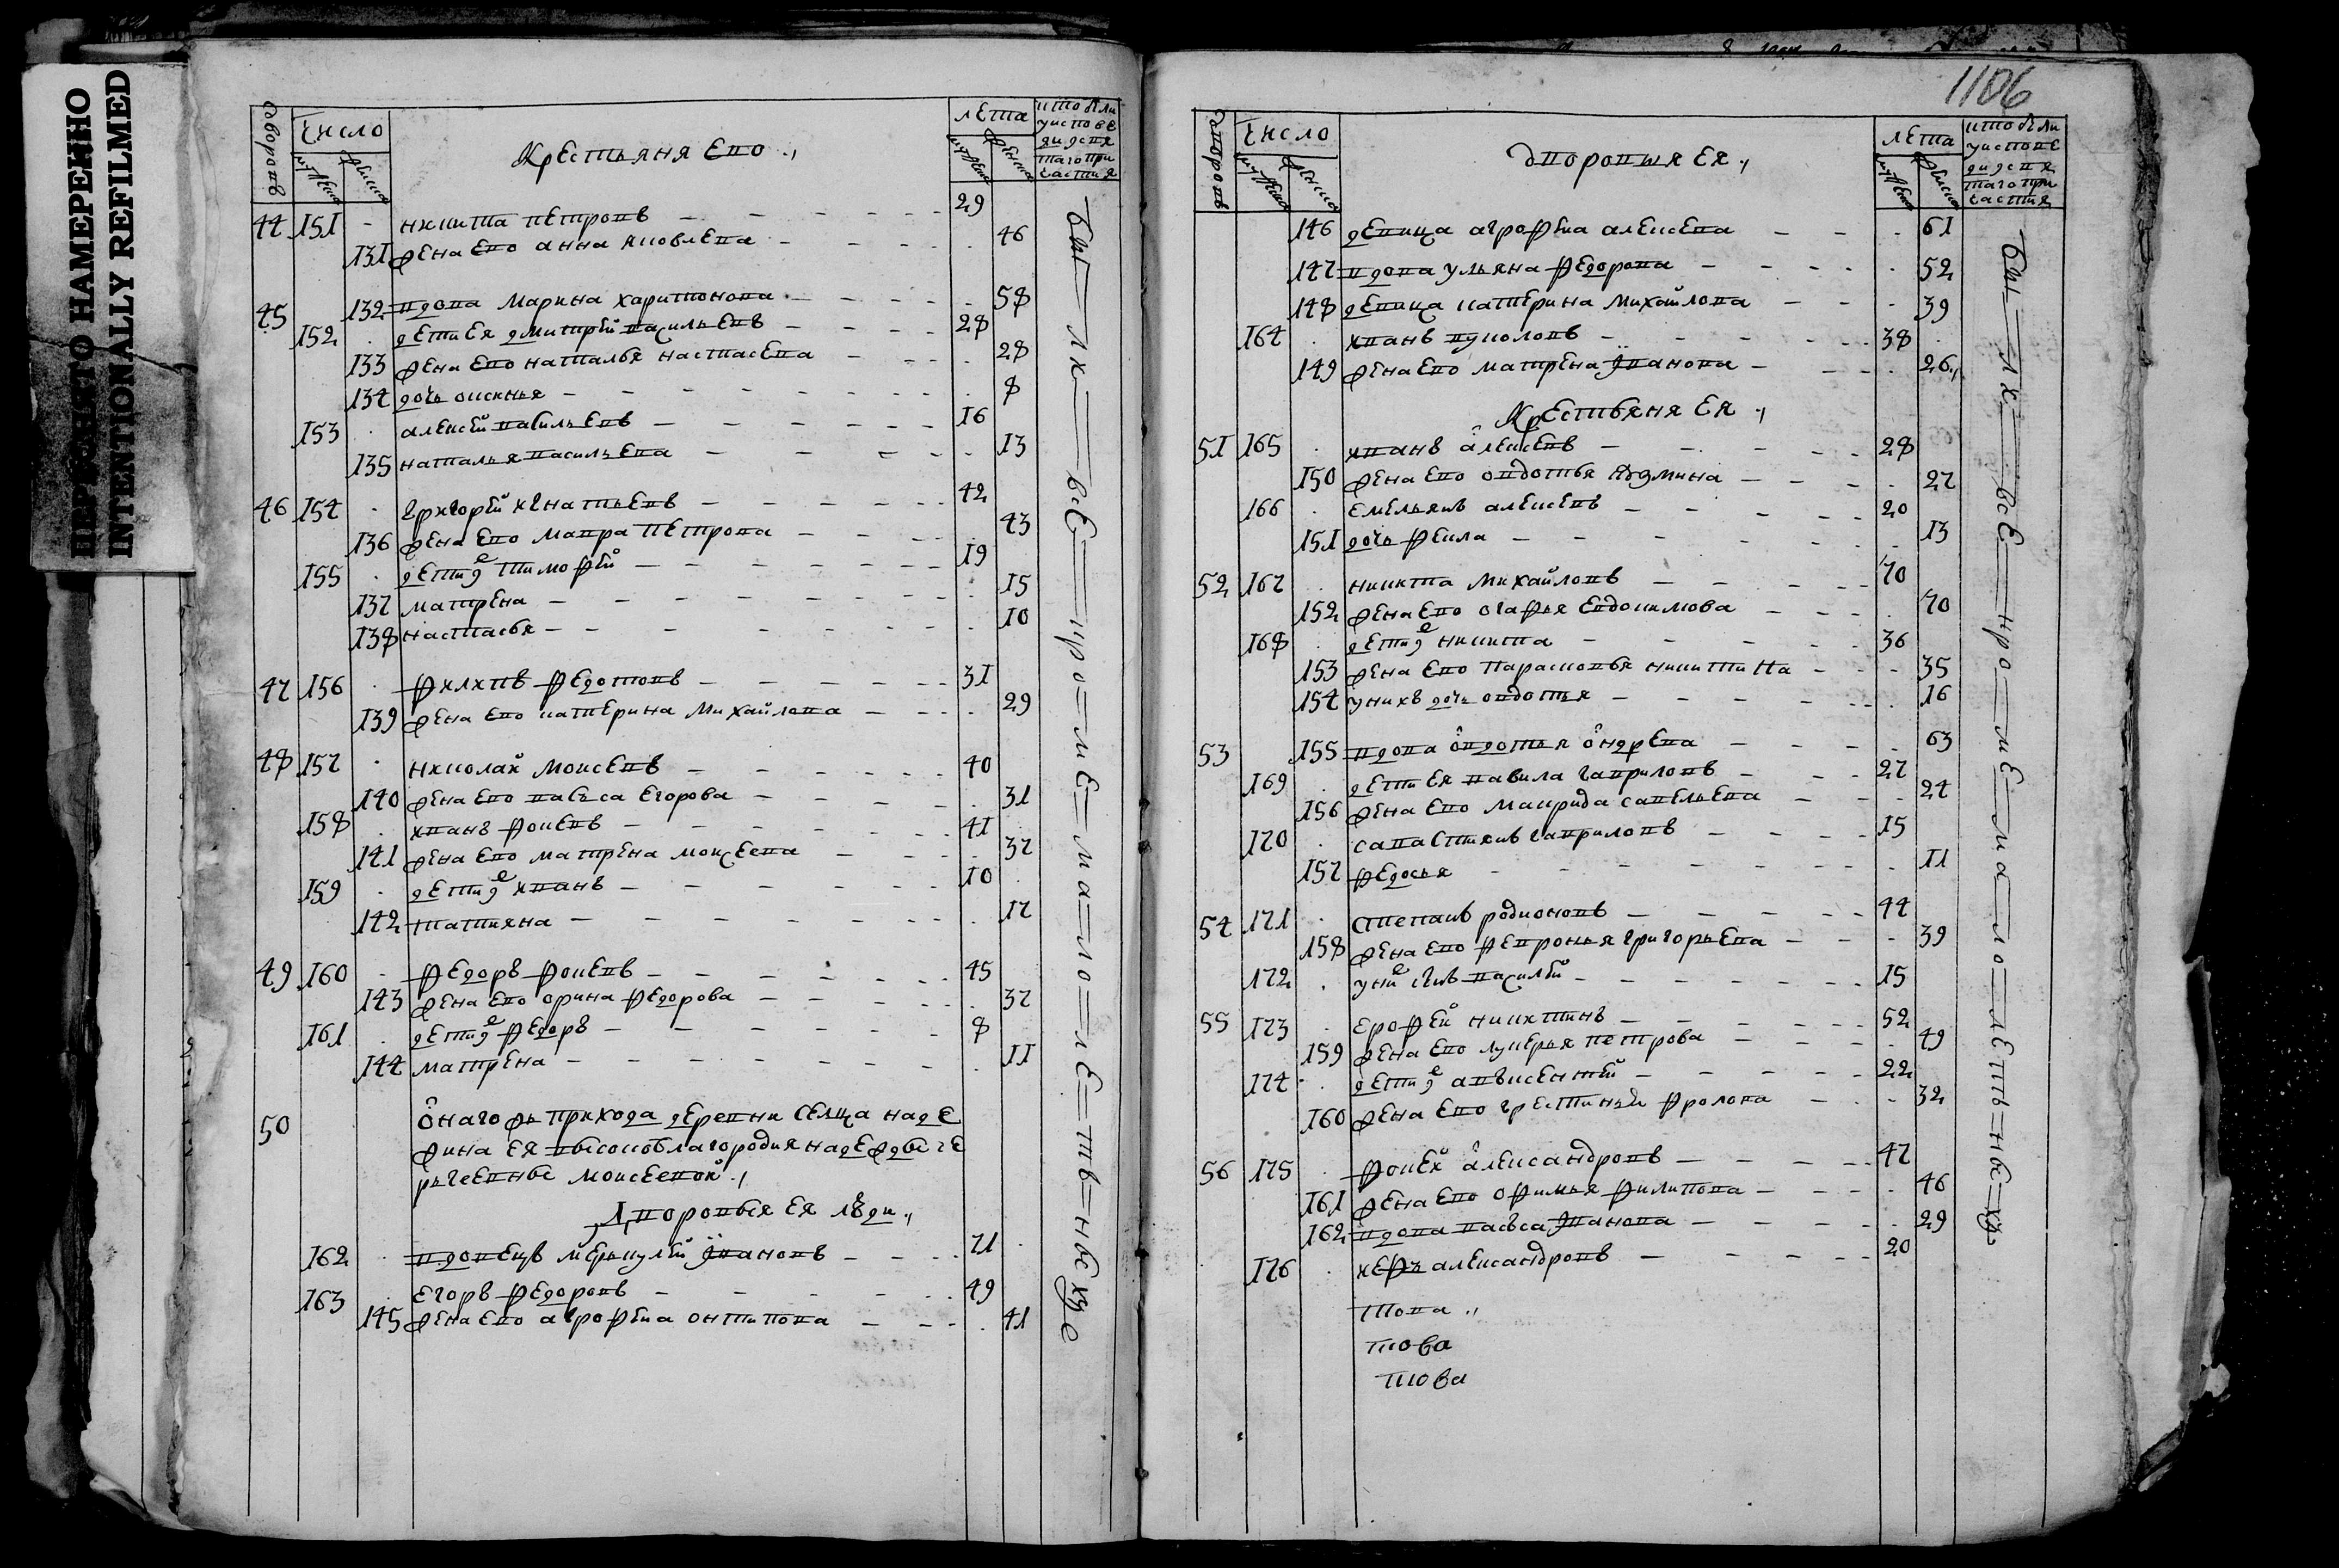 ПЕРЕСНЯТО НАМЕРЕННО
INTENTIONALLY REFILMED
дворовъ число Крестьяня ево лета
мужеска женска мужеска женска
44 151 никита петровъ 29
131 жена ево анна яковлева 46
45 132 вдова марина харитонова 58
152 дети ея дмитрей васильевъ 28
133 жена ево наталья настасева 28
134 дочь 8
153 алексей васильевъ 16
135 наталья васильева 13
46 154 григорей игнатьевъ 42
136 жена ево мавра петрова 43
155 дети ихъ тимофей 19
137 матрена 15
138 настасья 10
47 156 филипъ федотовъ 31
139 жена ево катерина михайлова 29
48 157 николай моисевъ 40
140 жена ево васса егорова 31
158 иванъ фокевъ 41
141 жена ево матрена моисеева 37
159 дети иванъ 10
142 татияна 17
49 160 федоръ фокевъ 45
143 жена ево орина федорова 37
161 дети федоръ 8
144 матрена 11
50 онагожъ прихода деревни селца наде
жина ея высокоблагородия надежды ге
ргевны моисевой
Дворовыя ея люди
162 вдовецъ меркулей ивановъ 71
163 егоръ федоровъ 49
145 жена ево агрофена онтипова 41
1186
дворовъ число дворовыя ея лета
мужеска женска мужеска женска
146 девица агрофена алексева 61
147 вдова ульяна федорова 52
148 девица катерина михайлова 39
164 иванъ вуколовъ 38
149 жена ево матрена иванова 26
Крестьяня ея
51 165 иванъ алексевъ 28
150 жена ево овдотья кузмина 27
166 емельянъ алексевъ 20
151 дочь фекла 13
52 167 никита михайловъ 70
152 жена ево огафья евдокимова 70
168 дети никита 36
153 жена ево парасковья никитина 35
154 у нихъ дочь овдотья 16
53 155 вдова овдотья ондрева 63
169 дети ея вавила гавриловъ 27
156 жена ево маврида савельева 24
170 савастиянъ гавриловъ 15
157 федосья 11
54 171 степанъ родионовъ 44
158 жена ево февронья григорьева 39
172 у них сынъ василей 15
55 173 ерофей никитинъ 52
159 жена ево лукерья петрова 49
174 дети авксентей 22
160 жена ево фролова 32
56 175 фокей александровъ 47
161 жена ево офимья филипова 46
162 вдова васса иванова 29
176 александровъ 20
това
това
това